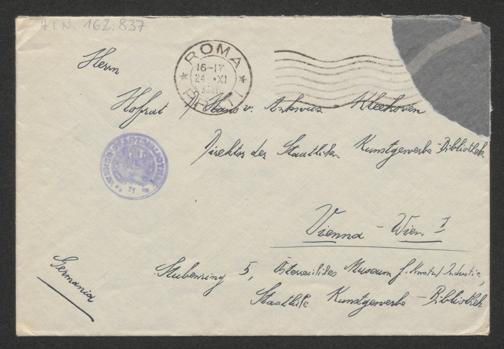 A.I.N. 162.837
ROMA
16-17
24 · XI
Herrn
Hofrat Hans v. Ankwicz Kleehoven
Direktor der Staatlichen Kunstgewerbe-Bibliothek
Vienna - Wien I
Stubenring 5, Österreichisches Museum f. Kunst u. Industrie,
Staatliche Kunstgewerbe-Bibliothek
Germania